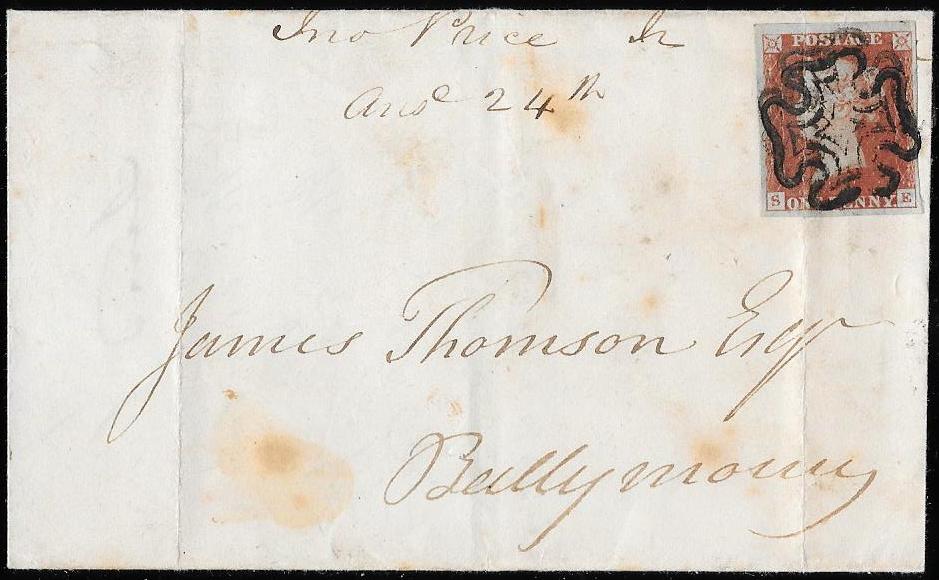 Jno Price Jr
Ansd 24th
POSTAGE
S ONE PENNY E
James Thomson Esqr
Ballymoney